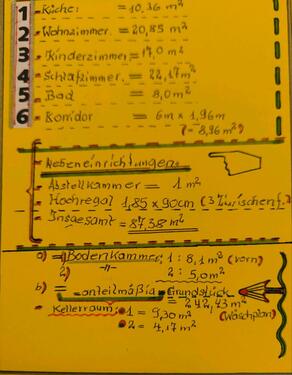 1 - Küche: = 10,36 m²
2 - Wohnzimmer. = 20,85 m²
3 - Kinderzimmer = 17,0 m²
4 - Schlafzimmer. = 22,17 m²
5 - Bad = 8,0 m²
6 - Korridor = 6m x 1,96m
(= 8,96 m²)
Nebeneinrichtungen
- Abstellkammer = 1 m²
- Hochregal 1,85 x 90cm (3 Zwischenf.)
- Insgesamt = 87,38 m²
a) = Bodenkammer 1 : 8,1 m² (vorn)
2) -"- 2 : 5,0 m²
b) = anteilmäßig = Grundstück
242,43 m²
- Kellerraum 1 = 9,30 m² (Waschplan)
2 = 4,17 m²